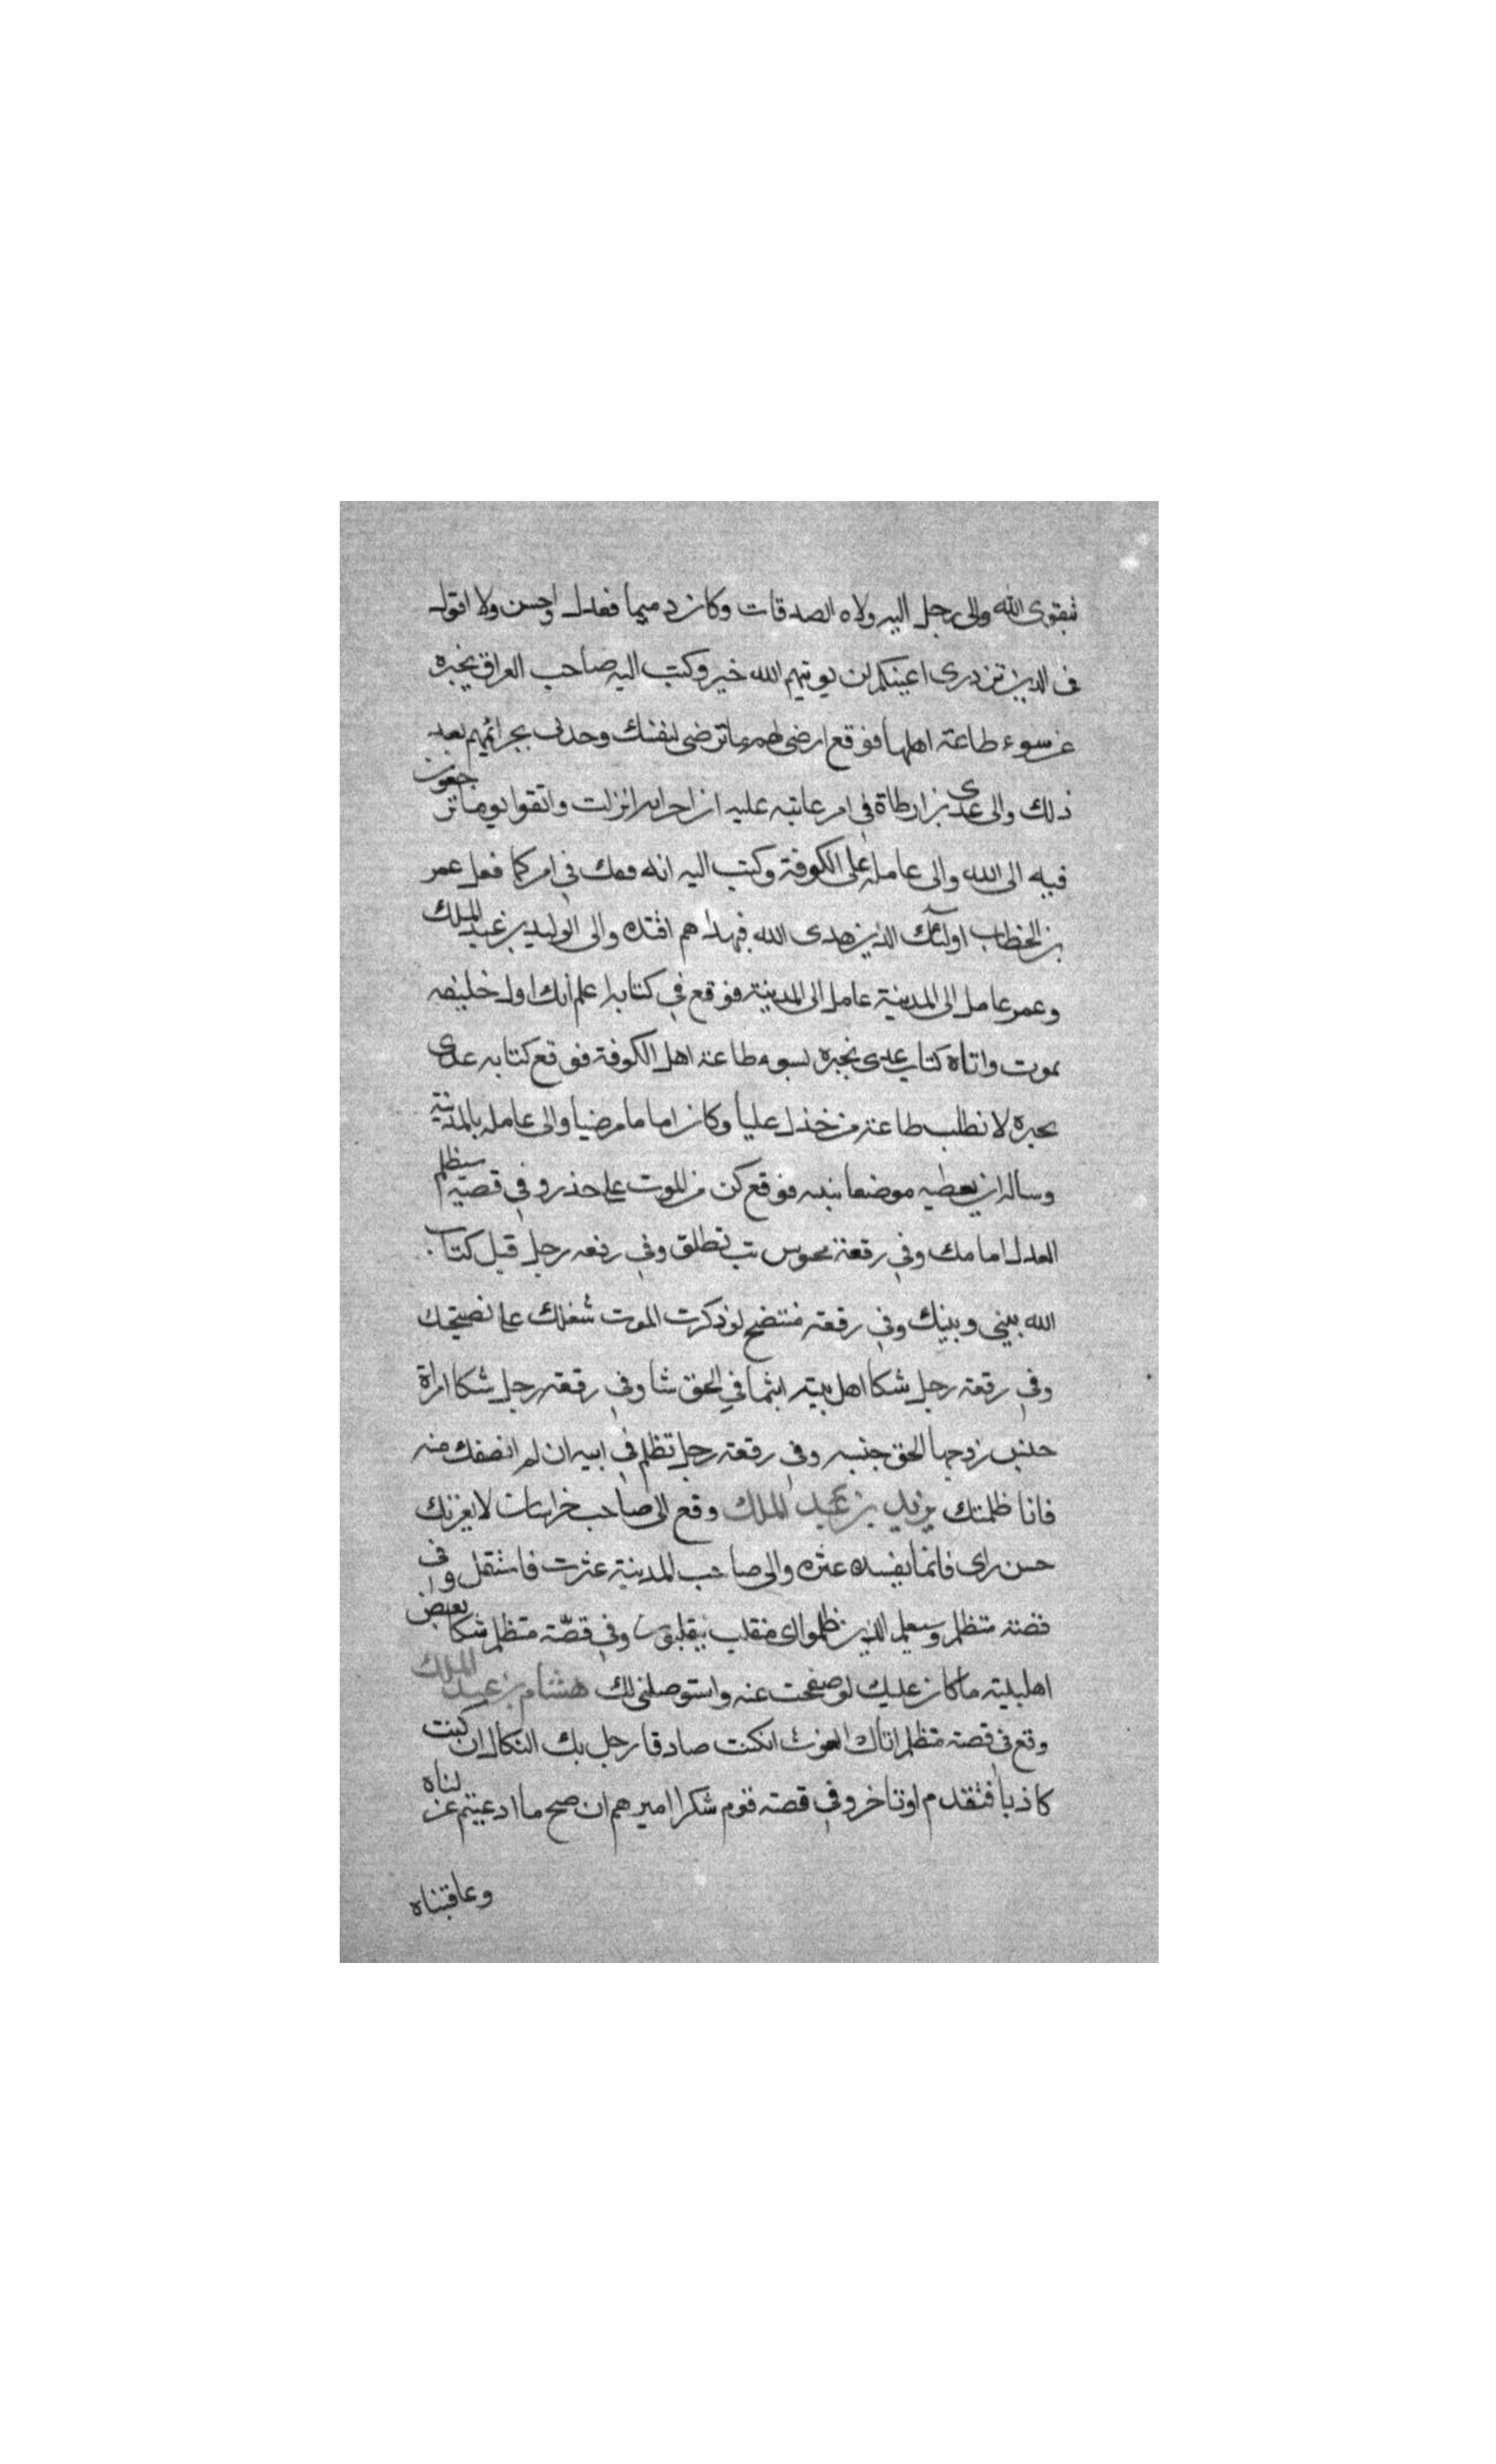 بتقوى الله والى رجل اليه ولاه الصدقات وكان دميما فعدل واحسن ولا اقول
فى الذين تزدرى اعينكم لن يوتيهم الله خير وكتب اليه صاحب العراق يخبره
عن سوء طاعة اهلها فوقع ارض لهم ما ترضى لنفسك وحدلى بجرائمهم بعد
ذلك والى عدى بن ارطاة فى امر عاتبه عليه ان اخر ايه انزلت واتقوا يوما ترجعون
فيه الى الله والى عامله على الكوفة وكتب اليه انه فعك فى امر كما فعل عمر
بن الخطاب اولئك الذين هدى الله فبهداهم اقتده والى الوليد بن عبد الملك
وعمر عامل الى المدينة عامل الى المدينة فوقع فى كتابه اعلم انك اول خليفه
يموت واتاه كتاب عدى يخبره بسوء طاعة اهل الكوفة فوقع كتابه عدى
يخبره لا تطلب طاعة من خذل عليا وكان اماما مرضيا والى عامله بالمدينة
وساله ان يعطيه موضعا يبنيه فوقع كن من الموت على حذر وفى قصة متظلم
العدل امامك وفى رقعة محبوس تب تطلق وفى رقعه رجل قتل كتاب
الله بينى وبينك وفى رقعة متنصح لو ذكرت الموت شغلك عن نصيحتك
وفى رقعة رجل شكا اهل بيته انتما فى الحق شا وفى رقعة رجل شكا امراة
حبس زوجها الحق حبسه وفى رقعة رجل تظلم فى ابيه ان لم انصفك منه
فانا ظلمتك يزيد بن عبد الملك وقع الى صاحب خراسان لا يغرنك
حسن راى فانما يفسده عثره والى صاحب المدينة عثرت فاستقل وفى
قصة متظلم وسيعلم الذين ظلموا اى منقلب ينقلبون وفى قصّة متظلم شكا بعض
اهل بيته ما كان عليك لو صفحت عنه واستوصلنى لك هشام بن عبد الملك
وقع فى قصة متظلم اتاك الغوث ان كنت صادقا رجل بك النكال ان كنت
كاذبا فتقدم او تاخر وفى قصة قوم شكوا اميرهم ان صح ما ادعيتم عزلناه
وعاقبناه